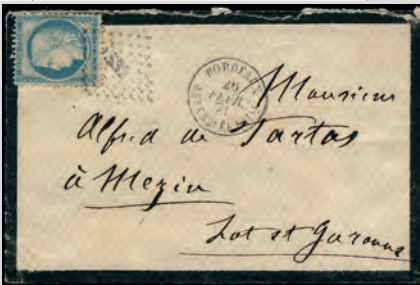 BORDEAUX
26
FEVR.
71
Monsieur
Alfred de Tartas
à Mezin
Lot et Garonne